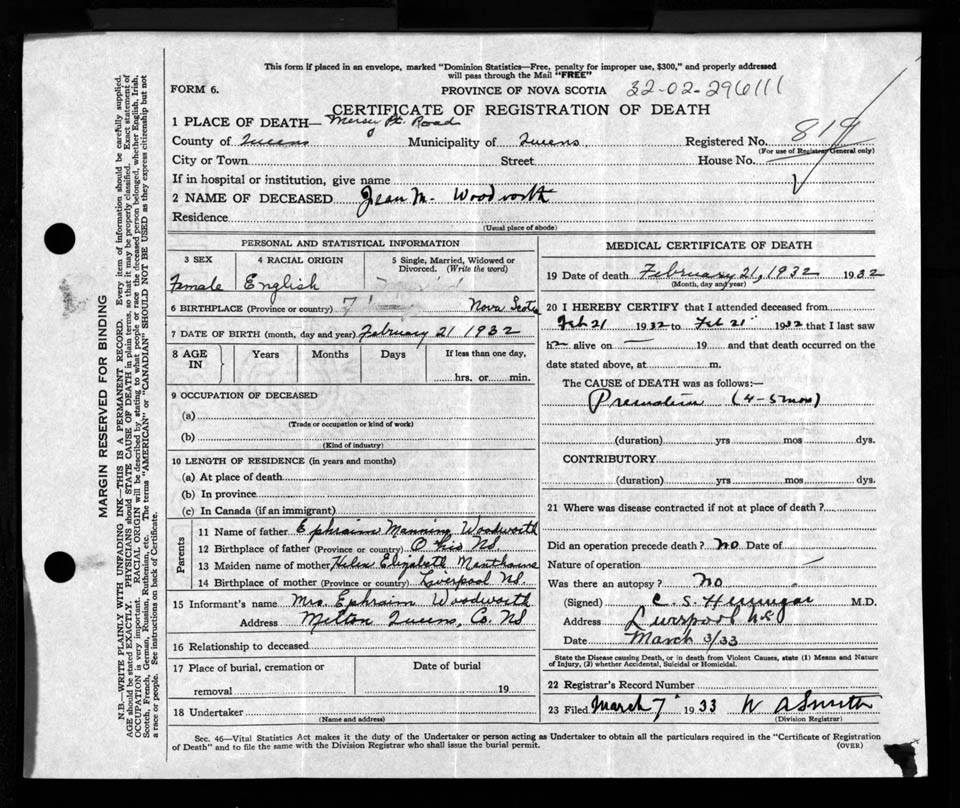 This form if placed in an envelope, marked "Dominion Statistics—Free, penalty for improper use, $300," and properly addressed
will pass through the Mail "FREE"
FORM 6.
PROVINCE OF NOVA SCOTIA 32-02-296111
CERTIFICATE OF REGISTRATION OF DEATH
1 PLACE OF DEATH— Mersey Pt. Road
County of Queens Municipality of Queens Registered No. 819
(For use of Registrar General only)
City or Town Street House No.
If in hospital or institution, give name
2 NAME OF DECEASED Jean M. Woodworth
Residence
(Usual place of abode)
PERSONAL AND STATISTICAL INFORMATION
3 SEX 4 RACIAL ORIGIN 5 Single, Married, Widowed or
Divorced. (Write the word)
Female English
6 BIRTHPLACE (Province or country) Nova Scotia
7 DATE OF BIRTH (month, day and year) February 21 1932
8 AGE IN Years Months Days If less than one day,
hrs. or min.
9 OCCUPATION OF DECEASED
(a)
(Trade or occupation or kind of work)
(b)
(Kind of industry)
10 LENGTH OF RESIDENCE (in years and months)
(a) At place of death
(b) In province
(c) In Canada (if an immigrant)
Parents
11 Name of father Ephraim Manning Woodworth
12 Birthplace of father (Province or country) NS
13 Maiden name of mother Helen Elizabeth
14 Birthplace of mother (Province or country) Liverpool NS.
15 Informant's name Mrs. Ephraim Woodworth
Address Milton Queens, Co. NS
16 Relationship to deceased
17 Place of burial, cremation or Date of burial
removal 19
18 Undertaker
(Name and address)
MEDICAL CERTIFICATE OF DEATH
19 Date of death February 21, 1932 1932
(Month, day and year)
20 I HEREBY CERTIFY that I attended deceased from
Feb 21 1932 to Feb 21 1932 that I last saw
h alive on — 19 and that death occurred on the
date stated above, at m.
The CAUSE of DEATH was as follows:—
(4-5 mos)
(duration) yrs mos dys.
CONTRIBUTORY
(duration) yrs mos dys.
21 Where was disease contracted if not at place of death?
Did an operation precede death? No Date of
Nature of operation
Was there an autopsy? No
(Signed) C. S. Hennigar M.D.
Address Liverpool NS
Date March 3/33
State the Disease causing Death, or in death from Violent Causes, state (1) Means and Nature
of Injury, (2) whether Accidental, Suicidal or Homicidal.
22 Registrar's Record Number
23 Filed March 7 1933 W A Smith
(Division Registrar)
Sec. 46—Vital Statistics Act makes it the duty of the Undertaker or person acting as Undertaker to obtain all the particulars required in the "Certificate of Registration
of Death" and to file the same with the Division Registrar who shall issue the burial permit. (OVER)
MARGIN RESERVED FOR BINDING
N.B.—WRITE PLAINLY WITH UNFADING INK—THIS IS A PERMANENT RECORD. Every item of information should be carefully supplied.
AGE should be stated EXACTLY. PHYSICIANS should STATE CAUSE OF DEATH in plain terms, so that it may be properly classified. Exact statement of
OCCUPATION is very important. RACIAL ORIGIN will be described by stating to what people or race the deceased person belonged, whether English, Irish,
Scotch, French, German, Russian, Ruthenian, etc. The terms "AMERICAN" or "CANADIAN" SHOULD NOT BE USED as they express citizenship but not
a race or people. See instructions on back of Certificate.